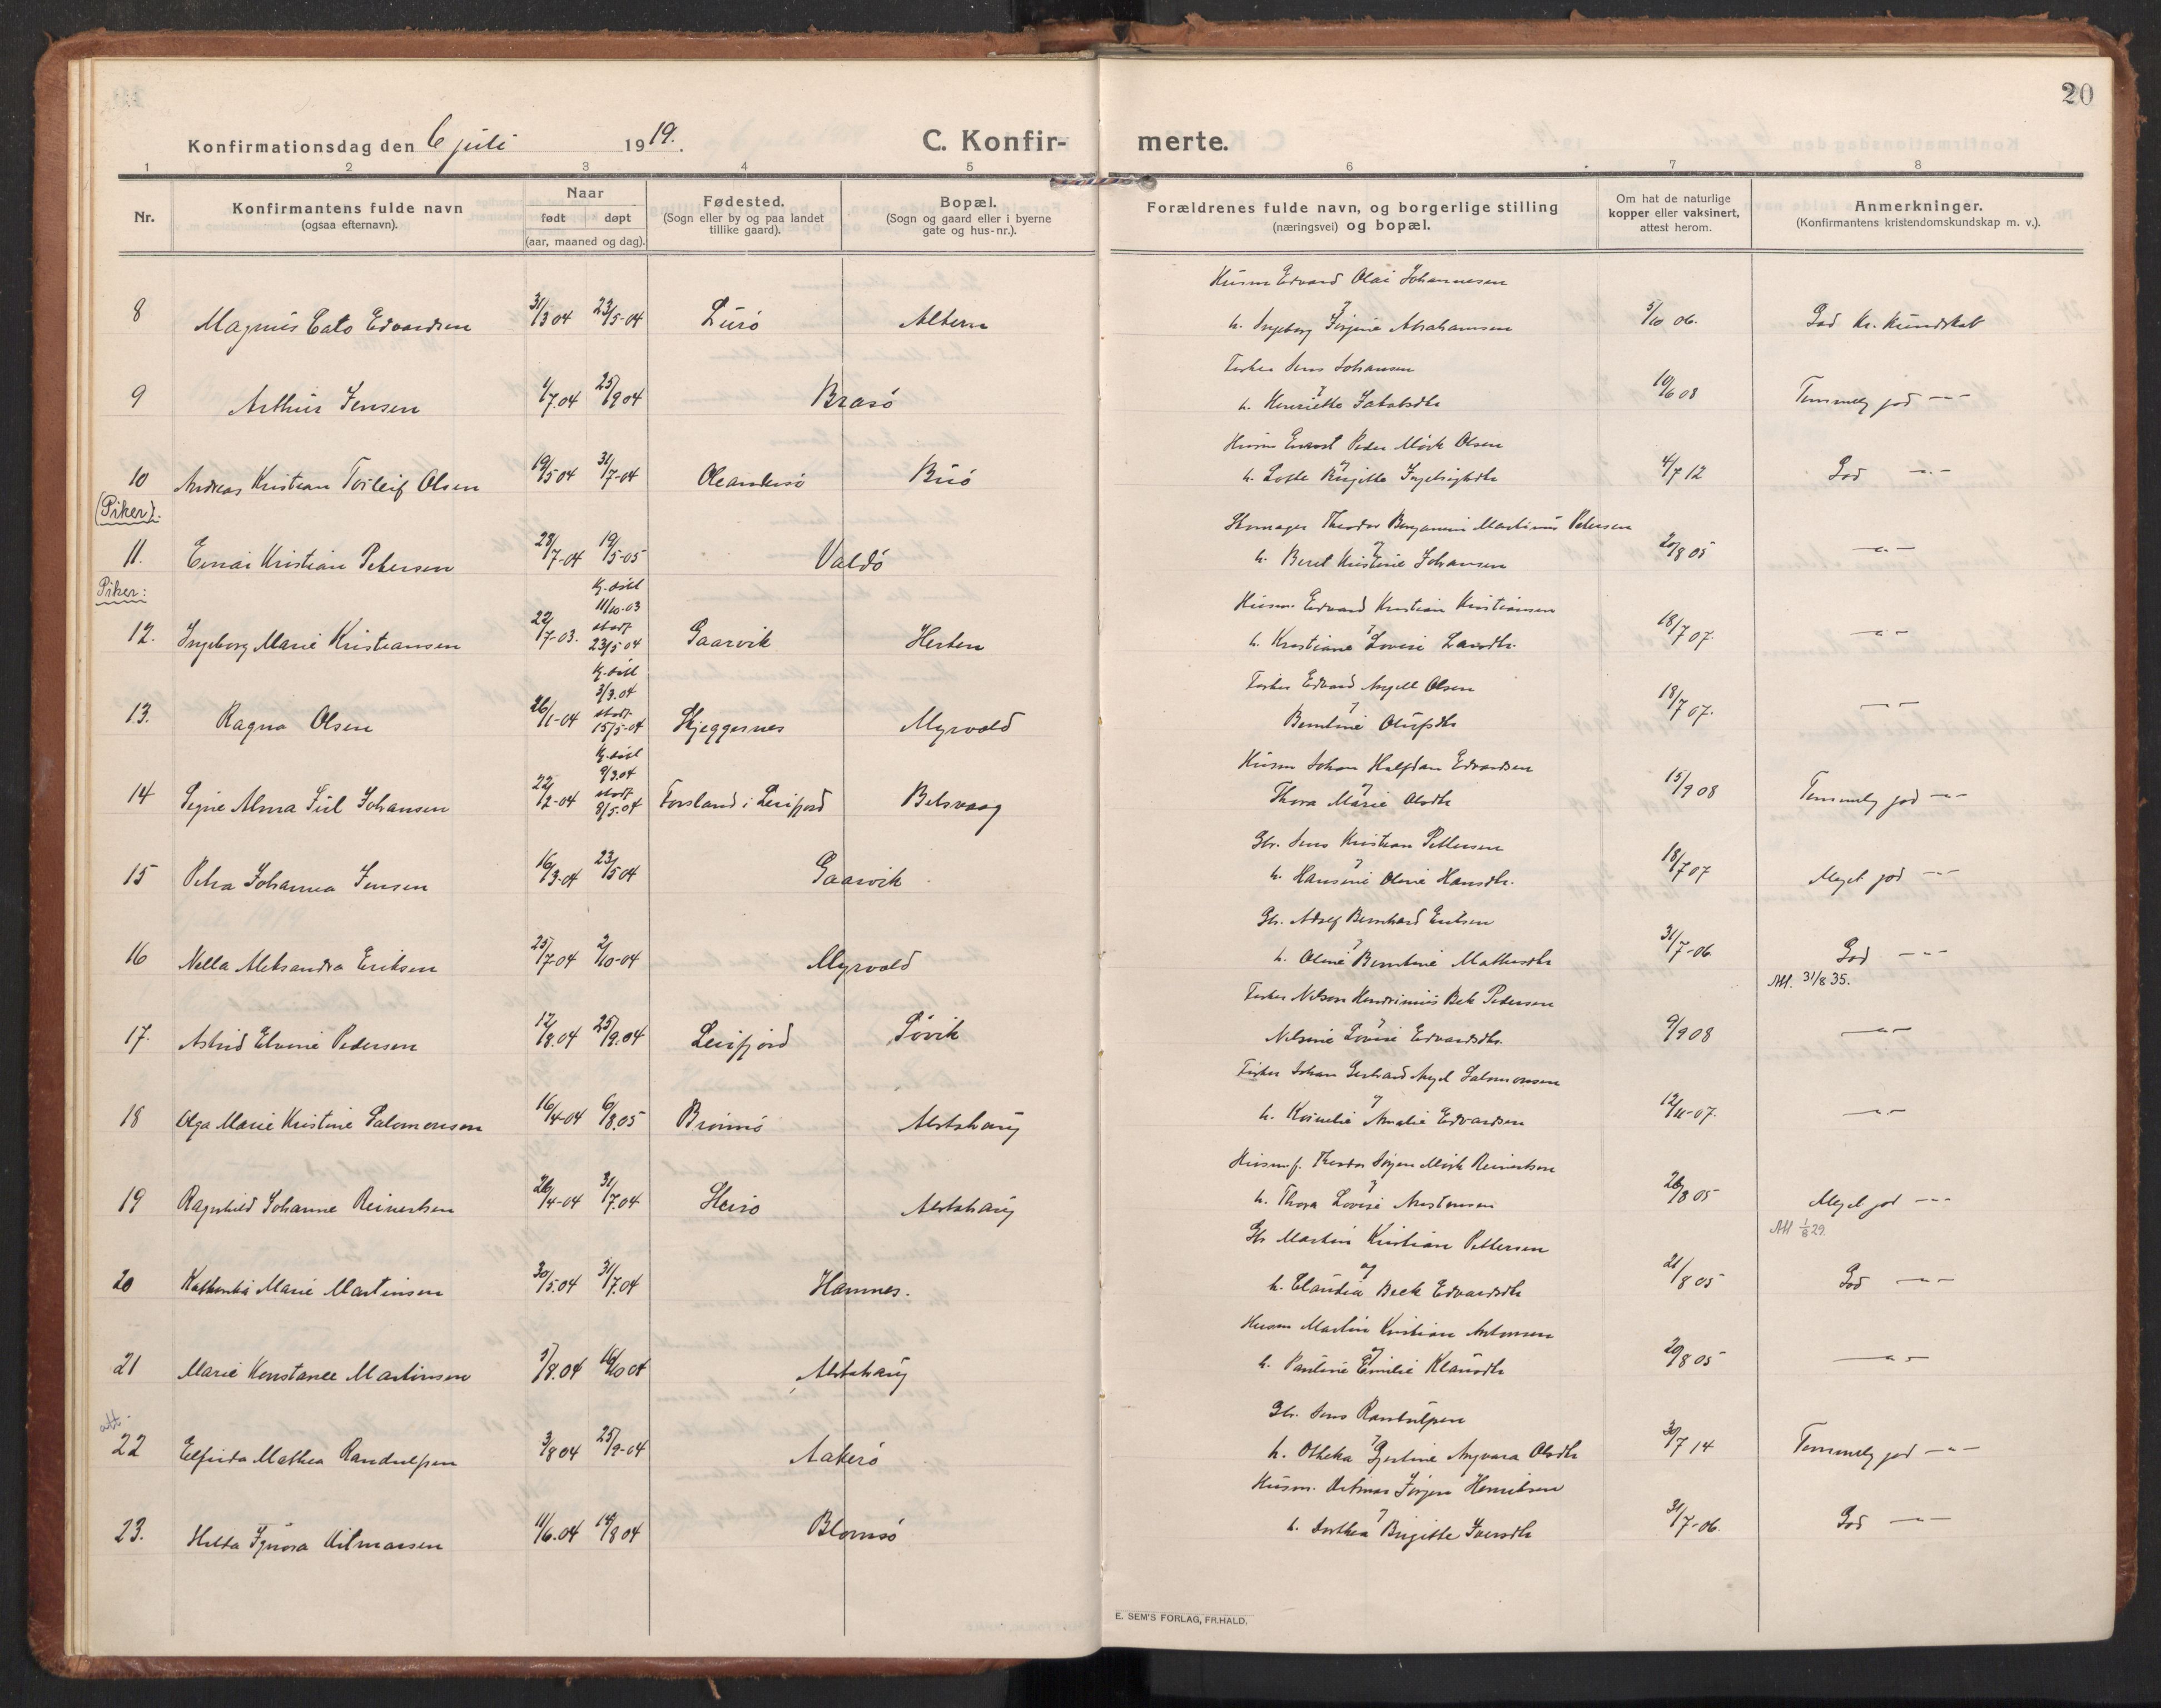 20
Konfirmationsdag den 6 juli 1919.
C. Konfir-merte.
1 2 3 4 5 6 7 8
Nr.
Konfirmantens fulde navn
(ogsaa efternavn).
Naar
født døpt
(aar, maaned og dag).
Fødested.
(Sogn eller by og paa landet
tillike gaard).
Bopæl.
(Sogn og gaard eller i byerne
gate og hus-nr.).
Forældrenes fulde navn, og borgerlige stilling
(næringsvei) og bopæl.
Om hat de naturlige
kopper eller vaksinert,
attest herom.
Anmerkninger.
(Konfirmantens kristendomskundskap m. v.).
Husm Edvard Olai Johannesen
8 Magnus Cato Edvardsen 31/3 04 23/5-04 Lurö Altern h. Ingeborg Jörgine Abrahamsen 5/10 06. God Kr. Kundskab
Fisker Jens Johansen
9 Arthur Jensen 1/7.04 25/9 04 Brasö h. Henriette Jakobsdtr 10/6 08 Temmelig god -"-
Husm Enevost Peder Mörk Olsen
10 Andreas Kristian Torleif Olsen 19/5 04 31/7-04 Oleandersö Buö h. Lotte Birgitte Ingebrigtsdtr 4/7 12 God -"-
(Piker).
Skomager Theodor Benjamin Martinus Petersen
11. Einar Kristian Petersen 23/7-04 19/5-05 Valdö h. Beret Kristine Johansen 20/8 05 -"-
Piker:
Kj. död 11/10-03
Husm. Edvard Kristian Kristiansen
12. Ingeborg Marie Kristiansen 22/7-03. stadf. 23/5 04 Gaarvik Herten h. Kristiane Lovise Larsdtr. 18/7 07. -"-
Kj. död 3/3.04
Fisker Edvard Angell Olsen
13. Ragna Olsen 26/1-04 stadf. 15/5-04 Skjeggesnes Myrvold Berntine Olufsdtr 18/7 07. -"-
Kj. död 9/3.04
Husm Johan Halfdan Edvardsen
14 Signe Alma Jul Johansen 22/2-04 stadf. 8/5.04 Forsland i Leirfjord Belsvaag Thora Marie Olsdtr 15/9 08 Temmelig god -"-
Gbr. Jens Kristian Pettersen
15 Petra Johanna Jensen 16/3-04 23/5 04 Gaarvik h. Hansine Oline Hansdtr. 18/7 07 Meget god -"-
Gbr. Adolf Bernhard Eriksen
16 Nella Aleksandra Eriksen 25/7-04 2/10-04 Myrvold h. Oline Berntine Mathisdtr 31/7-06 God -"-
Att. 31/8 35.
Fisker Nelson Hendrinius Bek Pedersen
17. Astrid Elvine Pedersen 12/8.04 25/9.04 Leirfjord Sövik Nelsine Lovise Edvardsdtr. 9/9 08 -"-
Fisker Johan Gerhard Angel Salomonsen
18 Olga Marie Kristine Salomonsen 16/4-04 6/8.05 Brönnö Alstahaug h. Kornelie Amalie Edvardsen 12/11-07. -"-
Husmf. Theodor Jörgen Mörk Reinertsen
19 Ragnhild Johanne Reinertsen 26/4-04 31/7.04 Herö Alstahaug h. Thora Lovise Anstensen 20/8 05 Meget god -"-
Att 1/8 29.
Gb Martin Kristian Pettersen
20 Kathinka Marie Martinsen 30/5.04 31/7.04 Hamnes. h. Claudia Beck Edvardsdtr 21/8 05 God -"-
Husm Martin Kristian Antonsen
21 Marie Konstance Martinsen 5/8.04 16/10 04 Alstahaug h. Pauline Emilie Klausdtr 20/8 05 -"-
Gbr. Jens Randulfsen
att.
22 Elfrida Mathea Randulfsen 3/8 04 25/9-04 Aakerö h. Otheka Gjertine Angvara Olsdtr 30/7 14 Temmelig god -"-
Husm. Hilmar Jörgen Henriksen
23. Hilda Ignora Hilmarsen 11/6.04 14/8 04 Blomsö h. Dorthea Birgitte Iversdtr 31/7-06. God -"-
E. SEM'S FORLAG, FR.HALD.